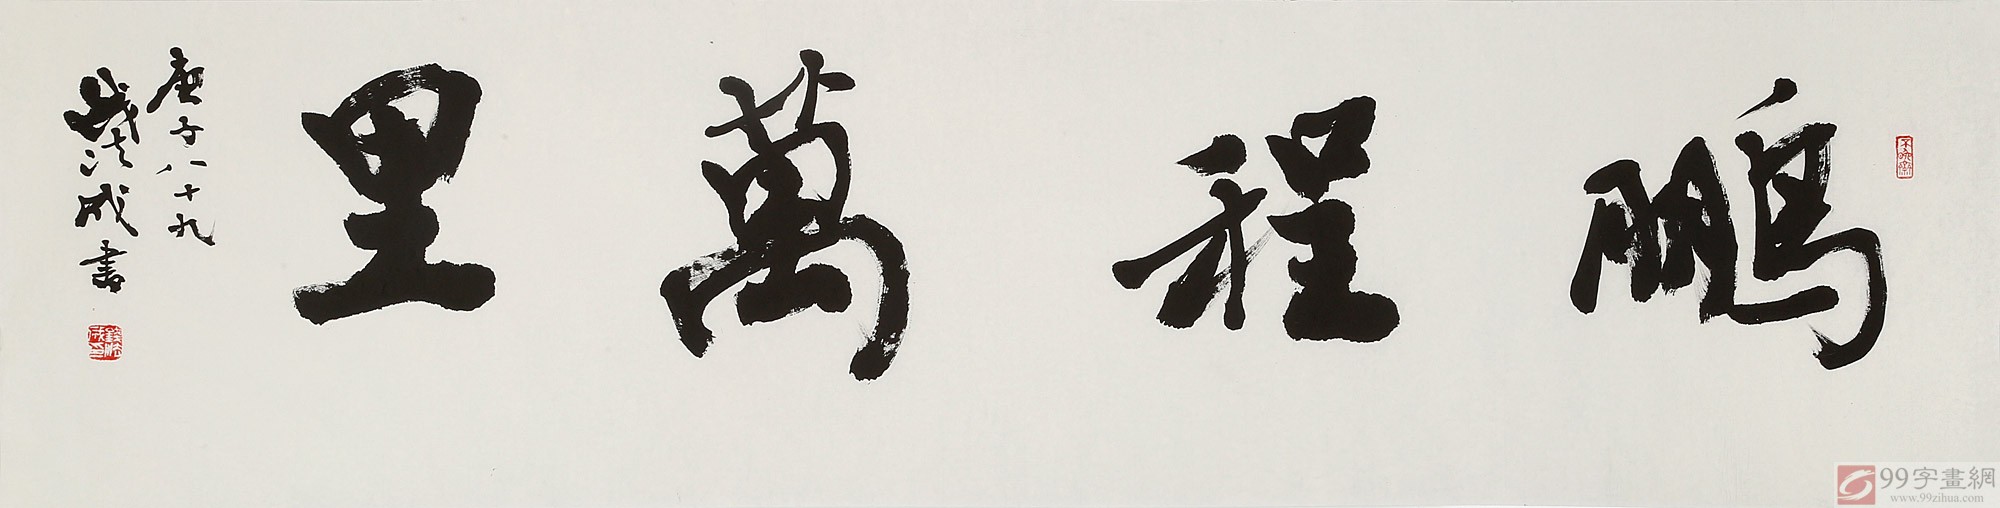 鵬程萬里
庚子八十九
歲法成書
99字畫網
www.99zihua.com